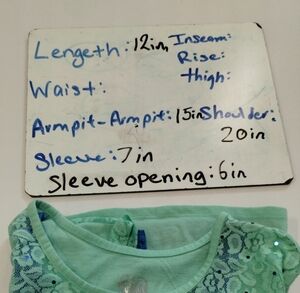 Lengeth: 12in Inseam:
Rise:
Waist: thigh:
Armpit-Armpit: 15in Shoulder:
20in
Sleeve: 7in
Sleeve opening: 6in